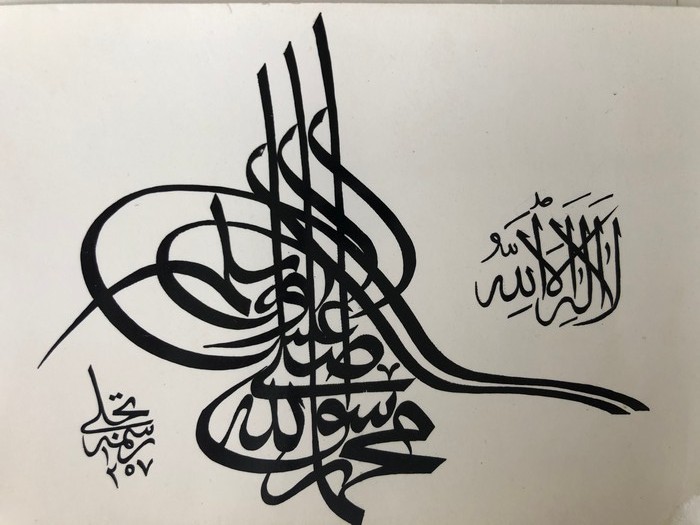 لا إله إلا الله
محمد رسول الله
صلى الله عليه وسلم
رسمه تجلى
١٢٥٧